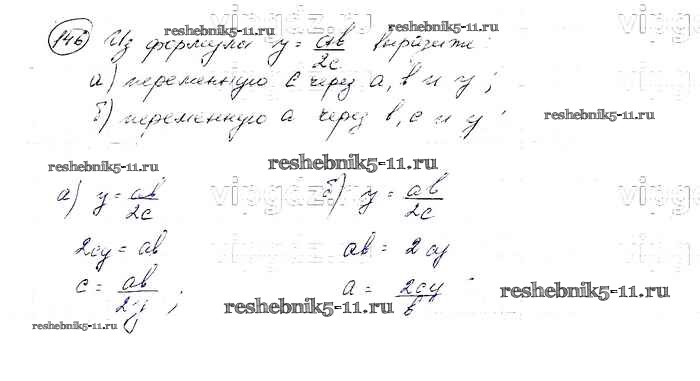 146 Из формулы y = ab/2c выразите:
а) переменную c через a, b и y;
б) переменную a через b, c и y
а) y = ab/2c
2cy = ab
c = ab/2y;
б) y = ab/2c
ab = 2cy
a = 2cy/b
reshebnik5-11.ru
reshebnik5-11.ru
reshebnik5-11.ru
reshebnik5-11.ru
reshebnik5-11.ru
reshebnik5-11.ru
reshebnik5-11.ru
reshebnik5-11.ru
vipgdz.ru
vipgdz.ru
vipgdz.ru